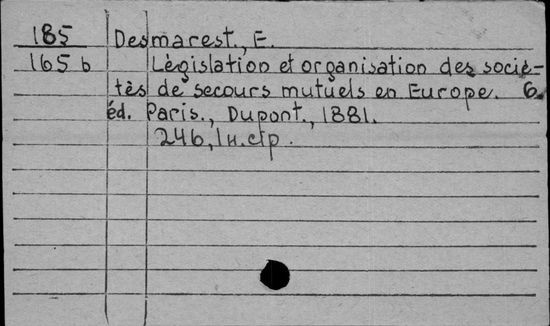 185 Desmarest., E.
165 b Lègislation et organisation des sociè-
tès de secours mutuels en Europe. 6.
éd. Paris., Dupont., 1881.
246, 1 н. стр.